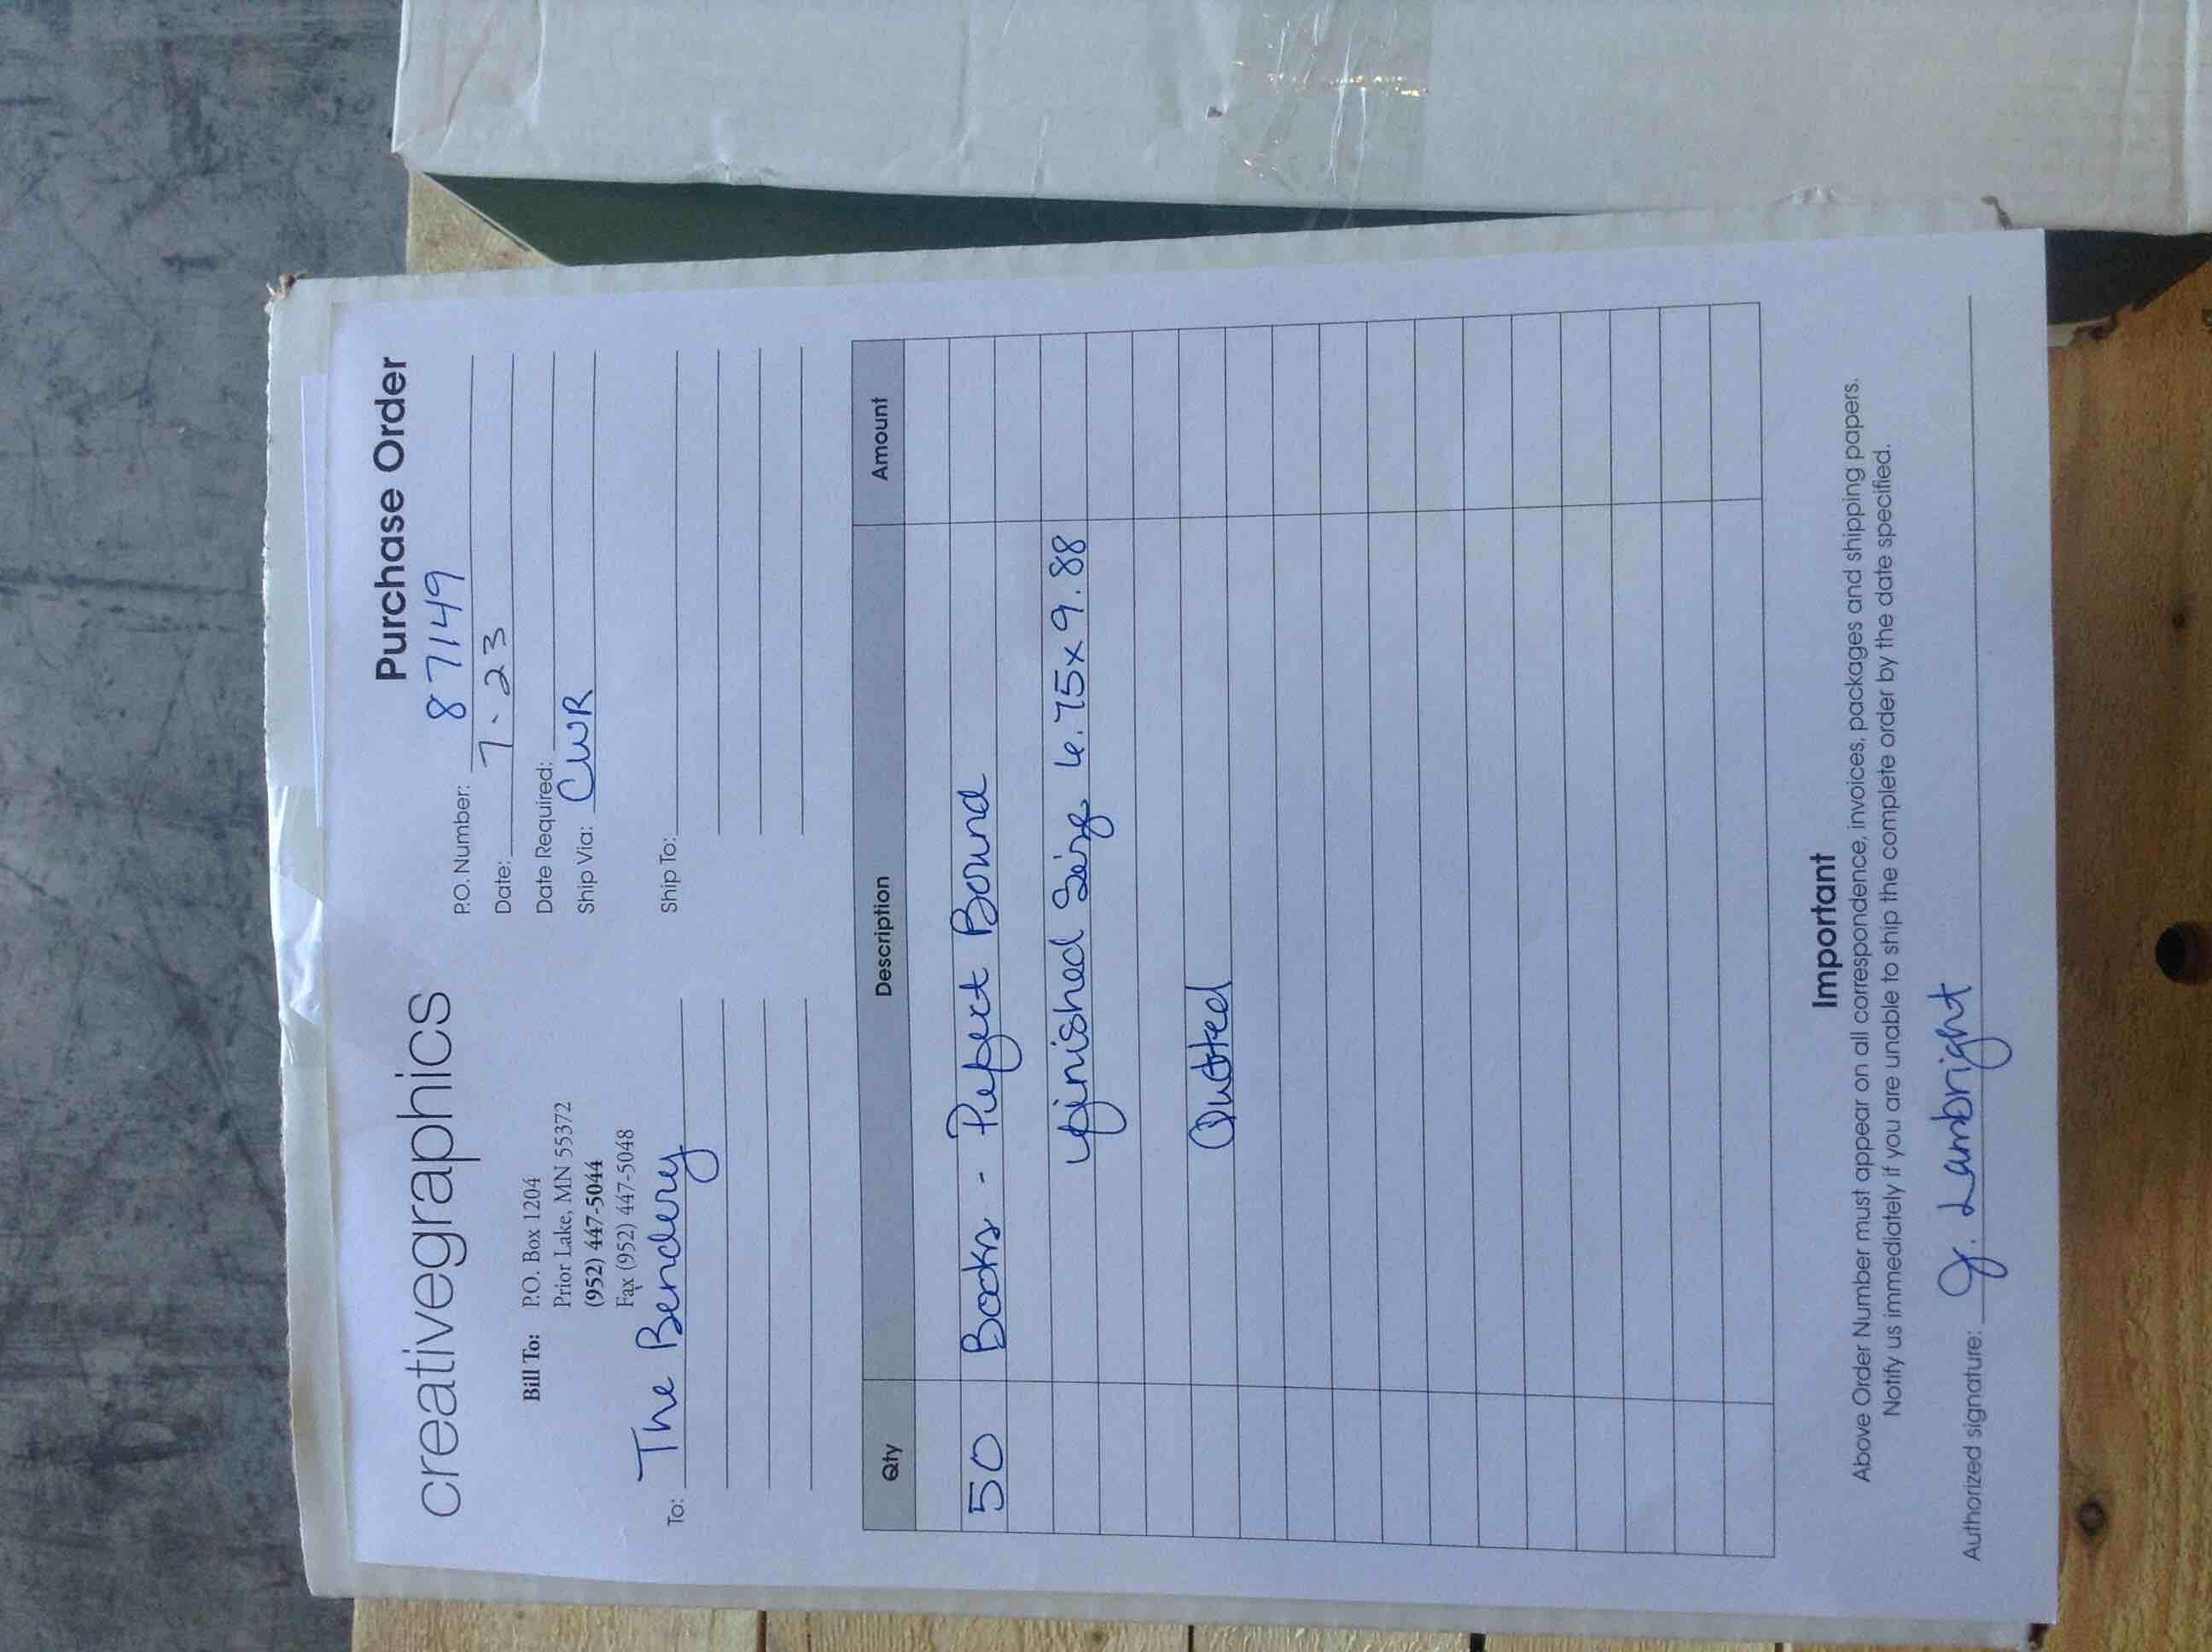 creativegraphics
Purchase Order
Bill To: P.O. Box 1204
Prior Lake, MN 55372
(952) 447-5044
Fax (952) 447-5048
To: The Bendery
P.O. Number: 87149
Date: 7.23
Date Required:
Ship Via: CWR
Ship To:
Qty Description Amount
50 Books - Perfect Bound
Finished Size 6.75x9.88
Quoted
Important
Above Order Number must appear on all correspondence, invoices, packages and shipping papers.
Notify us immediately if you are unable to ship the complete order by the date specified.
Authorized signature: J. Lambright